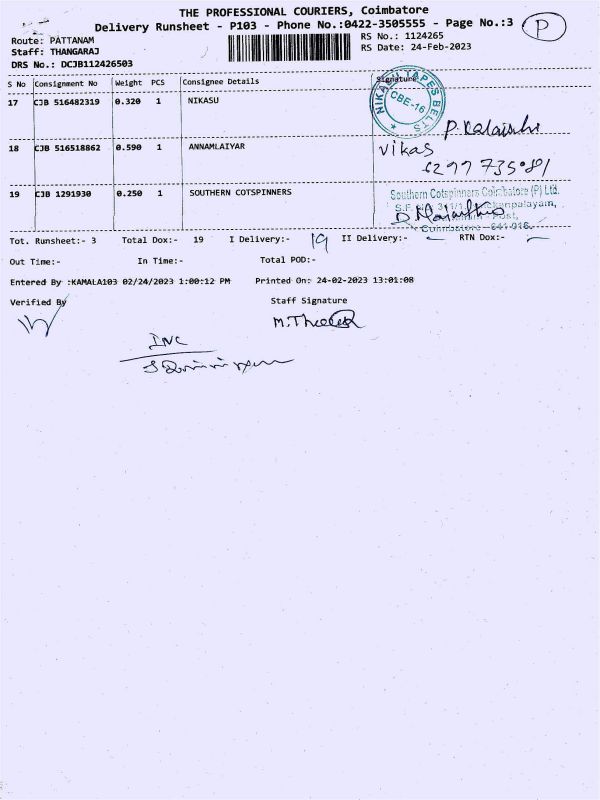 THE PROFESSIONAL COURIERS, Coimbatore
Delivery Runsheet - P103 - Phone No.:0422-3505555 - Page No.:3
P
Route: PATTANAM
RS No.: 1124265
Staff: THANGARAJ
RS Date: 24-Feb-2023
DRS No.: DCJB112426503
S No Consignment No Weight PCS Consignee Details Signature
17 CJB 516482319 0.320 1 NIKASU
NIKASU TAPES BELTS CBE-16
18 CJB 516518862 0.590 1 ANNAMLAIYAR
Vikas
19 CJB 1291930 0.250 1 SOUTHERN COTSPINNERS
Southern Cotspinners Coimbatore (P) Ltd.
Tot. Runsheet:- 3 Total Dox:- 19 I Delivery:- 19 II Delivery:- RTN Dox:-
Out Time:- In Time:- Total POD:-
Entered By :KAMALA103 02/24/2023 1:00:12 PM Printed On: 24-02-2023 13:01:08
Verified By Staff Signature
INC